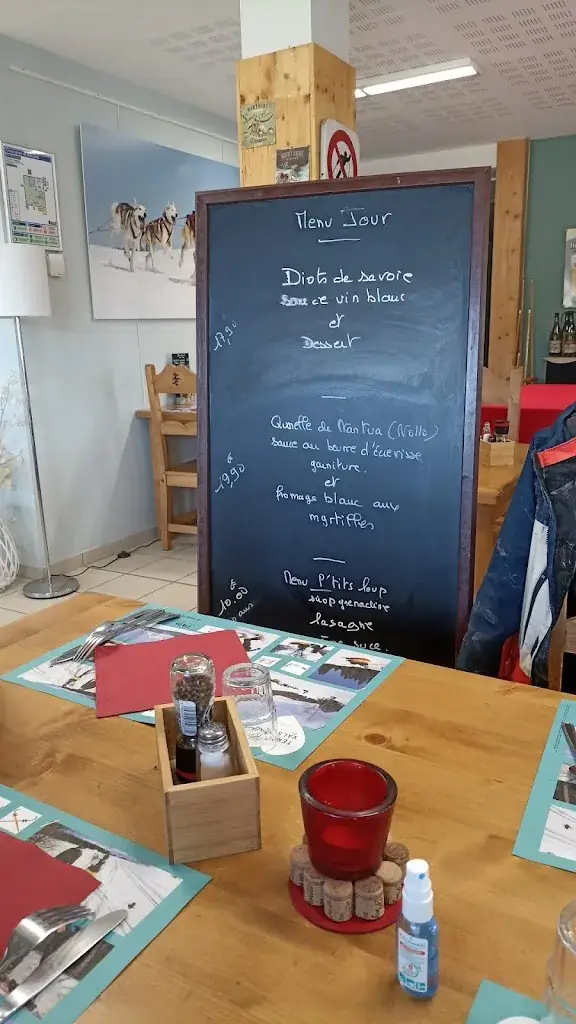 Menu Jour
Diots de savoie
sauce vin blanc
et
Dessert
17,90
Quenelle de Nantua (Nollo)
sauce au beurre d'écrevisse
garniture.
et
fromage blanc aux
myrtilles
€
19,90
Menu P'tits loup
sirop grenadine
lasagne
€
10.00